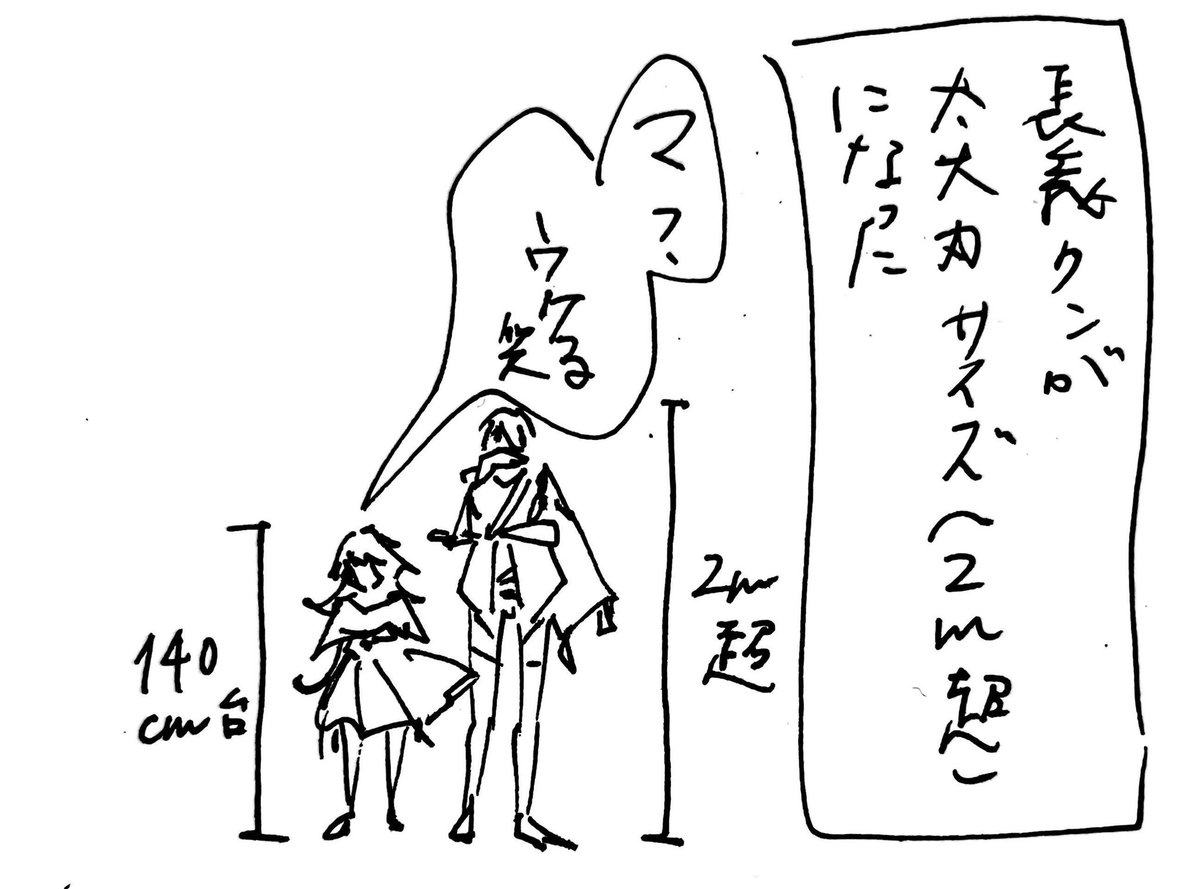 長義クンが
太大刀サイズ(2m超〜)
になった
ーウケる
笑
2m
超
140
cm台